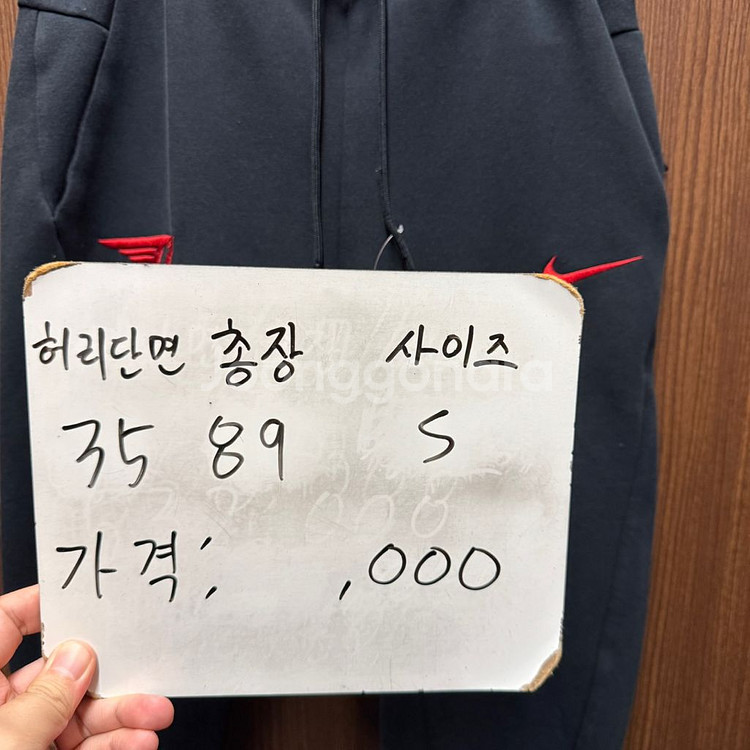 허리단면 총장 사이즈
35 89 S
가격: ,000
joonggonara